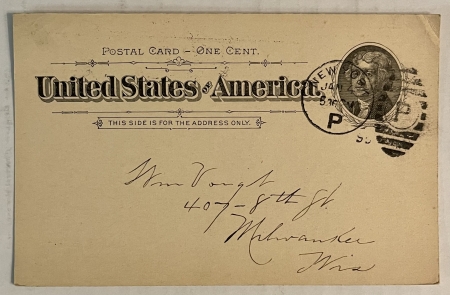 POSTAL CARD – ONE CENT.
United States of America.
THIS SIDE IS FOR THE ADDRESS ONLY.
NEW
P
P
Wm Voigt
407-8th St.
Milwaukee
Wis